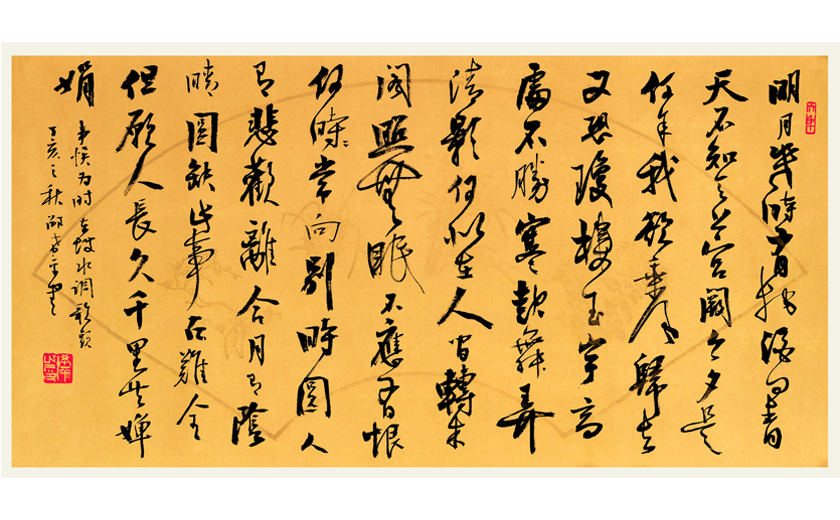 明月幾時有把酒问青
天不知天上宫闕今夕是
何年我欲乘風歸去
又恐瓊樓玉宇高
處不勝寒起舞弄
清影何似在人间轉朱
閣照無眠不應有恨
何時常向别時圓人
有悲歡離合月有陰
晴圆缺此事古難全
但願人長久千里共嬋
娟
坡水调歌頭
丁亥之秋